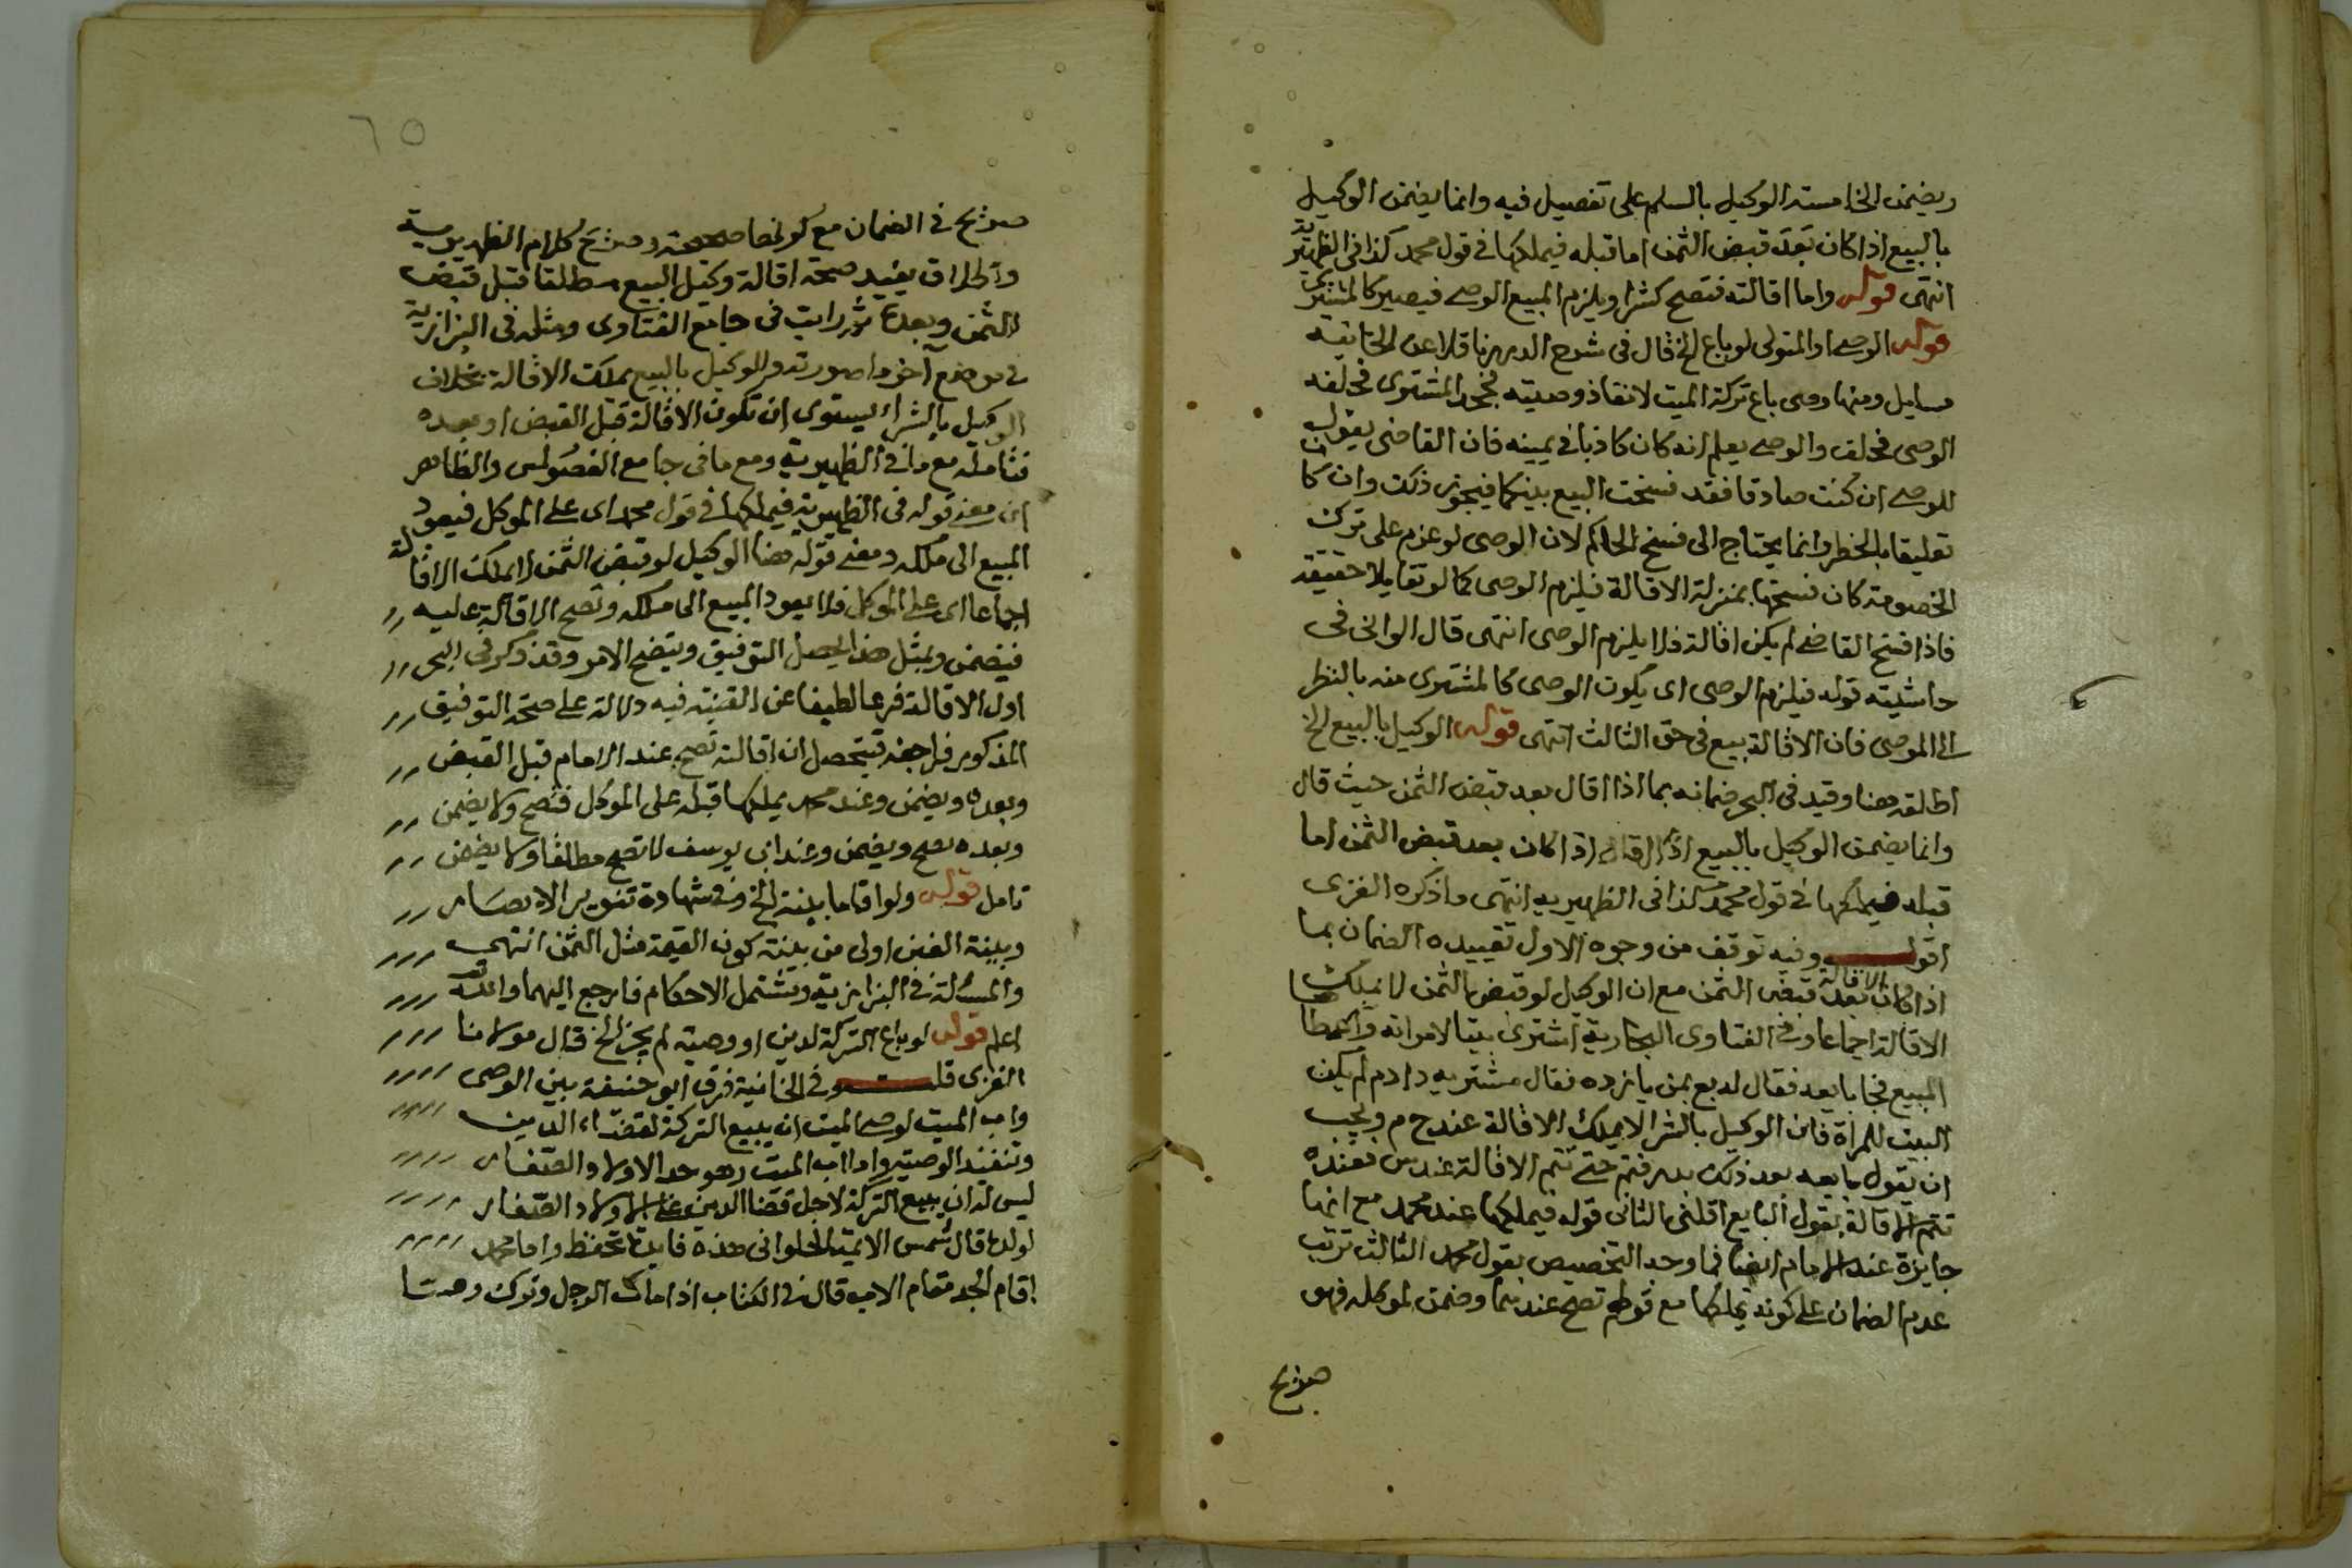 ويضمن الخامسة الوكيل بالسلم على تفصيل فيه وانما يضمن الوكيل
بالبيع اذا كان بعد قبض الثمن اما قبله فيملكها في قول محمد كذا في الظهيرية
انتهى قوله واما اقالته فتصح كشرا ويلزم المبيع الوصي فيصير كالمشتري
قوله الوصي او المتولي لو باع الخ قال في شرح الدرر ناقلا عن الخانية
مسايل ومنها وصي باع تركة الميت لانفاذ وصيته فجحد المشتري فحلفه
الوصي فحلف والوصي يعلم انه كان كاذبا في يمينه فان القاضي يقول
للوصي ان كنت صادقا فقد فسخت البيع بينكما فيجوز ذلك وان كان
تعليقا بالخطر وانما يحتاج الى فسخ الحاكم لان الوصي لو عزم على ترك
الخصومة كان فسخها بمنزلة الاقالة فيلزم الوصي كما لو تقايلا حقيقة
فاذا فسخ القاضي لم يكن اقالة فلا يلزم الوصي انتهى قال الواني في
حاشيته قوله فيلزم الوصي اى يكون الوصي كالمشتري منه بالنظر
الى الموصي فان الاقالة بيع في حق الثالث انتهى قوله الوكيل بالبيع الخ
اطلقه هنا وقيد في البحر ضمانه بما اذا اقال بعد قبض الثمن حيث قال
وانما يضمن الوكيل بالبيع اذا اقال اذا كان بعد قبض الثمن اما
قبله فيملكها في قول محمد كذا في الظهيريه انتهى وذكره الغزى
اقول وفيه توقف من وجوه الاول تقييده الضمان بما
اذا كان الاقالة بعد قبض الثمن مع ان الوكيل لو قبض الثمن لا يملك
الاقالة اجماعا وفي الفتاوى اشترى بيتا لامراته واعطا
المبيع فجا بايعه فقال له بع بمن يانزده فقال مشتريه دادم لم يكن
البيت للمراة فان الوكيل بالشرا لا يملك الاقالة عند ح م ويجب
ان يقول بايعه بعد ذلك حتى تتم الاقالة عند س فعنده
تتم الاقالة بقول البايع اقلني الثاني قوله فيملكها عند محمد مع انها
جايزة عند الامام ايضا فما وجه التخصيص بقول محمد الثالث ترتب
عدم الضمان على كونه يملكها مع قولهم تصح عندهما وضمن لموكله فهو
صريح
٦٥
صريح في الضمان مع كونها صحيحة وصريح كلام الظهيرية
واطلاق يفيد صحة اقالة وكيل البيع مطلقا قبل قبض
الثمن وبعده ثم رايت في جامع الفتاوى ومثله في البزازية
في موضع آخر ما صورته والوكيل بالبيع يملك الاقالة بخلاف
الوكيل بالشراء يستوى ان تكون الاقالة قبل القبض او بعده
فتامله مع ما في الظهيرية ومع ما في جامع الفصولين والظاهر
ان معنى قوله في الظهيرية فيملكها في قول محمد اى على الموكل فيعود
المبيع الى ملكه ومعنى قوله هنا الوكيل لو قبض الثمن لا يملك الاقالة
اجماعا اى على الموكل فلا يعود المبيع الى ملكه وتصح الاقالة عليه
فيضمن وبمثل هذا يحصل التوفيق ويتضح الامر وقد ذكر في البحر
اول الاقالة فرعا لطيفا عن القنية فيه دلالة على صحة التوفيق
المذكور فراجعه فيتحصل ان اقالته تصح عند الامام قبل القبض
وبعده ويضمن وعند محمد يملكها قبله على الموكل فتصح ولا يضمن
وبعده تصح ويضمن وعند ابي يوسف لا تصح مطلقا ولا يضمن
تامل قوله ولو اقاما بينة الخ وفي شهادة تنوير الابصار
وبينة الغبن اولى من بينة كون القيمة مثل الثمن انتهى
والمسئلة في البزازية ومشتمل الاحكام فارجع اليهما والله تعالى
اعلم قوله لو باع التركة لدين او وصية لم يجز الخ قال مولانا
الغزى قلت وفي الخانية فرق ابو حنيفة بين الوصي
واب الميت لوصي الميت ان يبيع التركة لقضاء الدين
وتنفيذ الوصية واما اب الميت وهو جد الاولاد الصغار
ليس له ان يبيع التركة لاجل قضا الدين على الاولاد الصغار
لولده قال شمس الايمة الحلواني هذه فايدة تحفظ واما محمد
اقام الجد مقام الاب قال في الكتاب اذا مات الرجل وترك وصيا